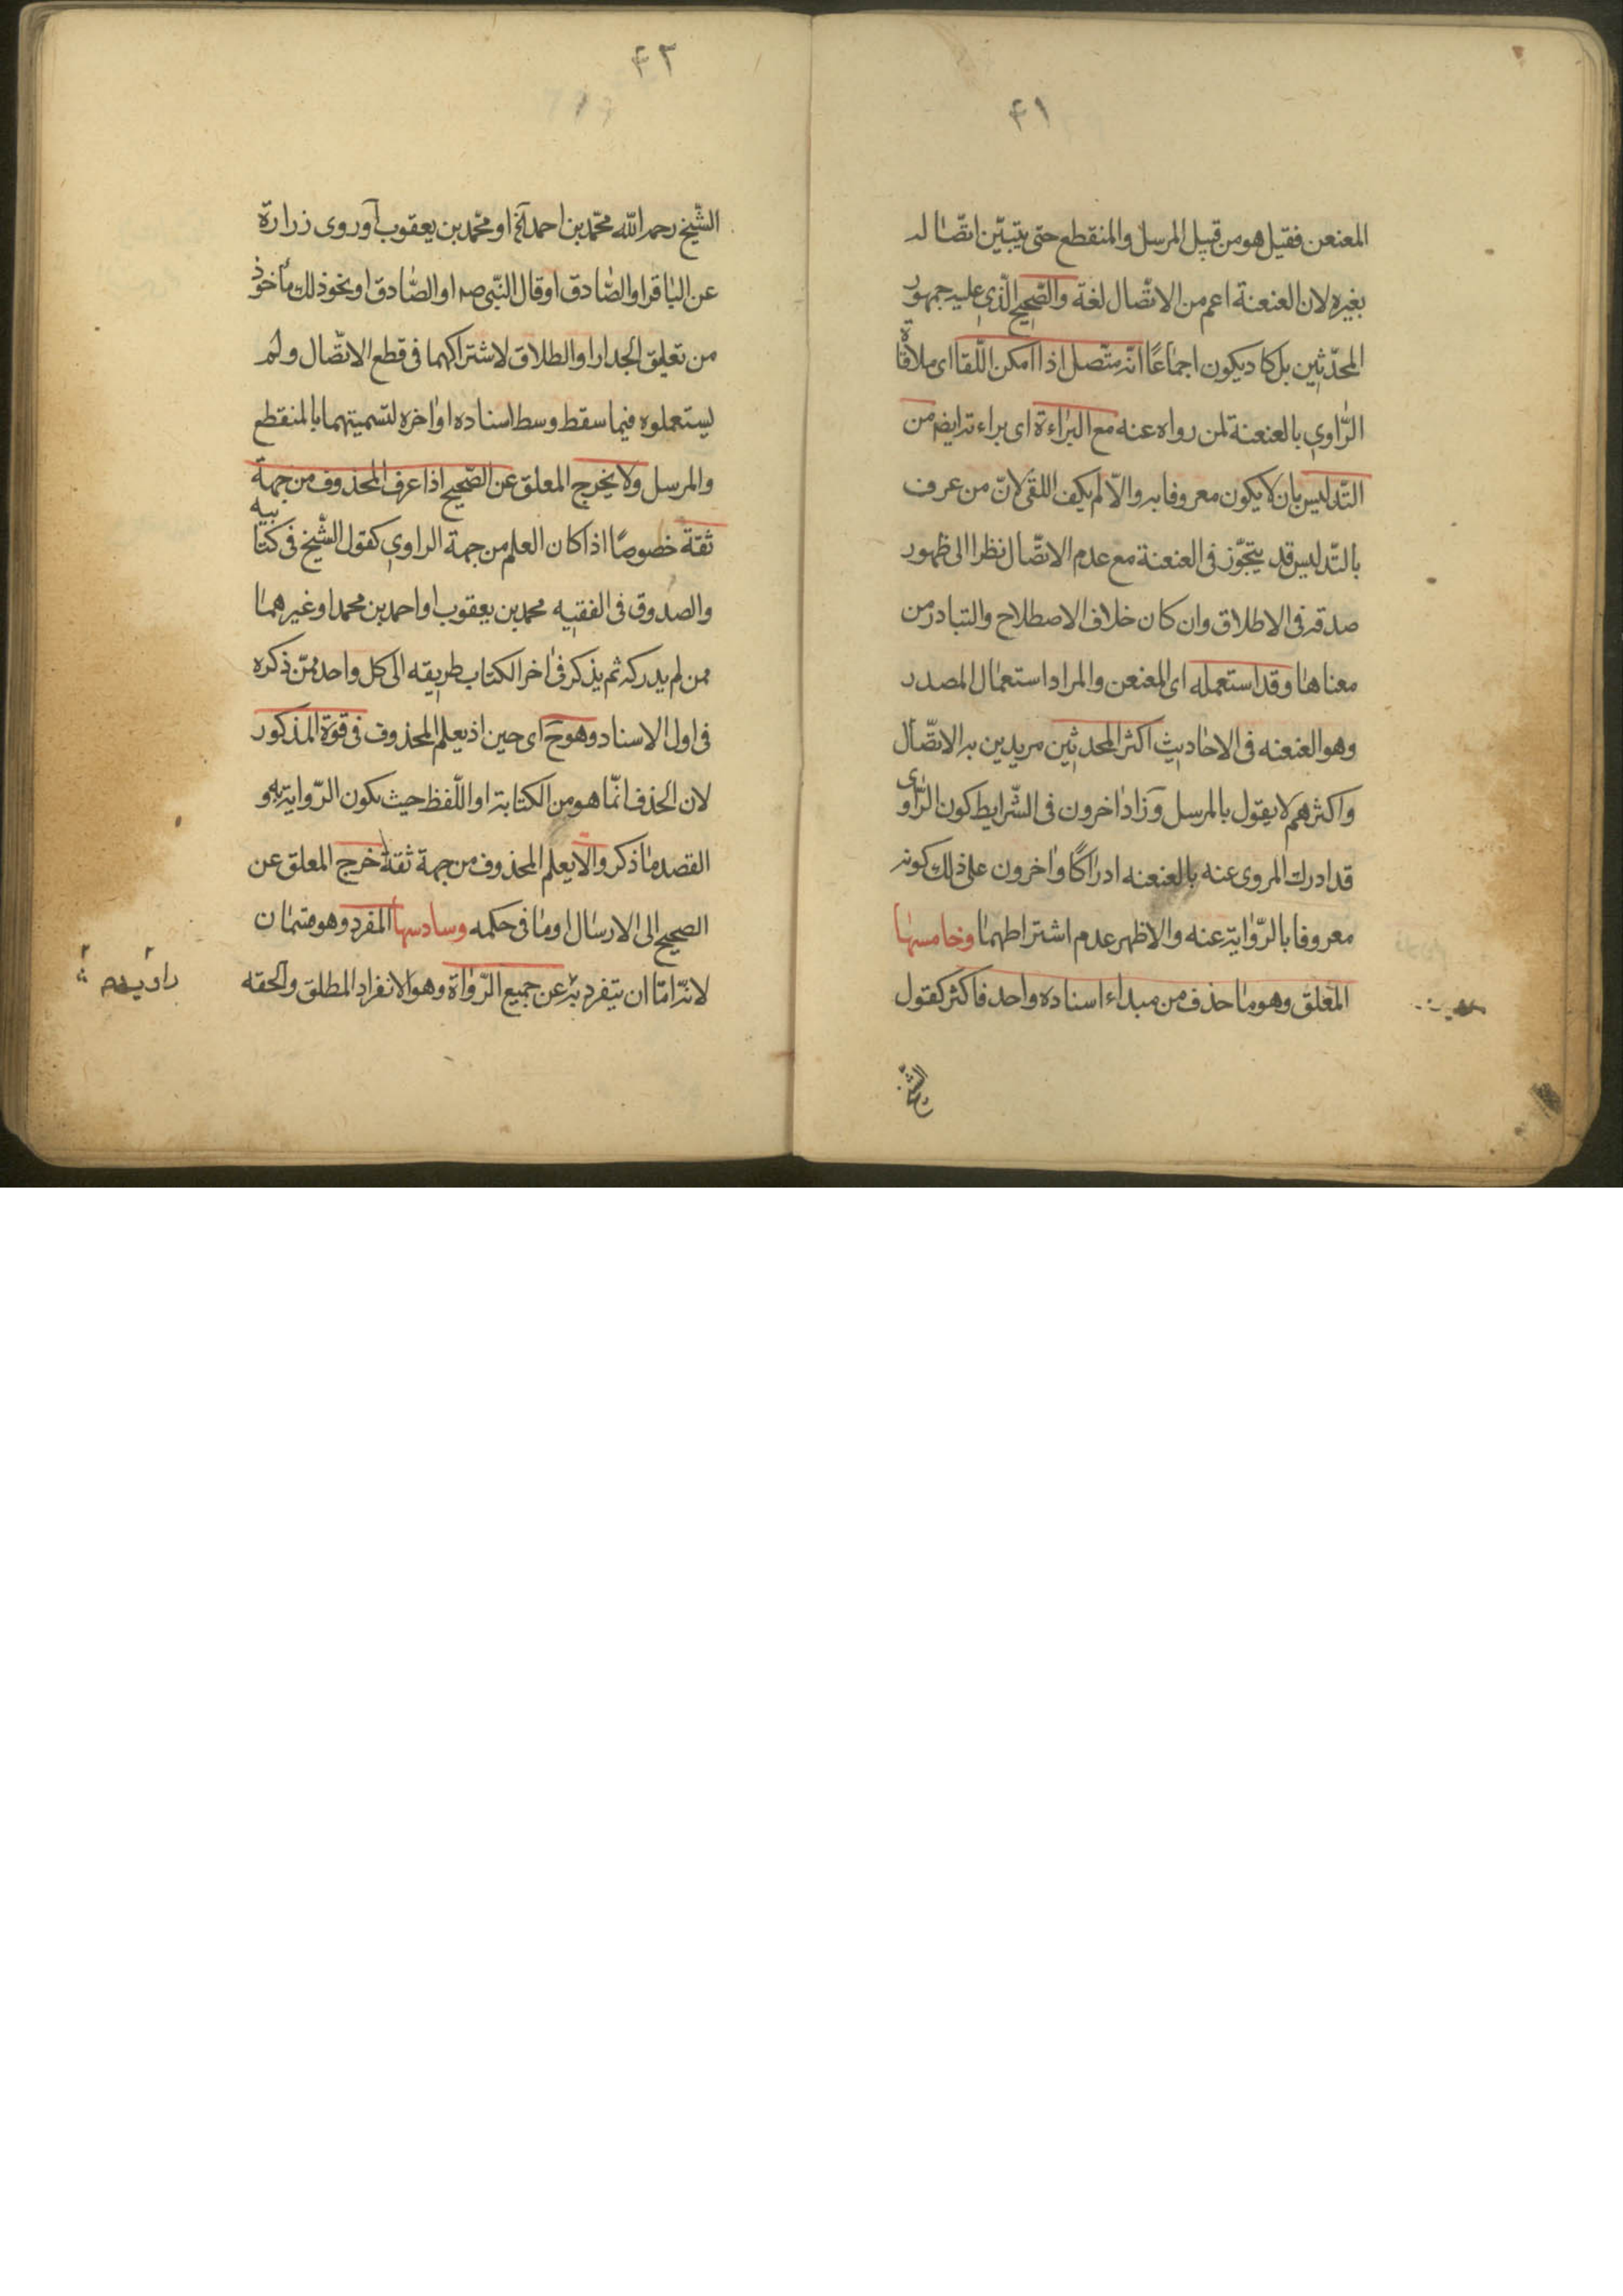 ۴۱
المعنعن فقيل هو من قبيل المرسل والمنقطع حتى يتبيّن اتّصاله
بغيره لان العنعنة اعم من الاتّصال لغة والصّحيح الّذي عليه جمهور
المحدّثين بل كاد يكون اجماعًا انّه متّصل اذا امكن اللّقا اى ملاقاة
الرّاوي بالعنعنة لمن رواه عنه مع البراءة اى براءته ايضا من
التّدليس بان لا يكون معروفا به والّا لم يكف اللقى لانّ من عرف
بالتّدليس قد يتجوّز فى العنعنة مع عدم الاتّصال نظرا الى ظهور
صدقه فى الاطلاق وان كان خلاف الاصطلاح والتبادر من
معناها وقد استعمله اى المعنعن والمراد استعمال المصدر
وهو العنعنه فى الاحاديث اكثر المحدثين مريدين به الاتّصال
واكثرهم لا يقول بالمرسل وزاد اخرون فى الشّرايط كون الرّاوى
قد ادرك المروى عنه بالعنعنه ادراكًا واخرون على ذلك كونه
معروفا بالرّواية عنه والاظهر عدم اشتراطهما وخامسها
المعلق وهو ما حذف من مبداء اسناده واحد فاكثر كقول
الشّيخ
۴۲
الشّيخ رحمه اللّه محمّد بن احمد آلخ او محمّد بن يعقوب آو روى زرارة
عن الباقر او الصّادق او قال النّبى صه او الصّادق او نحو ذلك مأخوذ
من تعليق الجدار او الطلاق لاشتراكهما فى قطع الاتّصال ولم
يستعملوه فيما سقط وسط اسناده او اخره لتسميتهما بالمنقطع
والمرسل ولا يخرج المعلق عن الصّحيح اذا عرف المحذوف من جهة
ثقة خصوصًا اذا كان العلم من جهة الراوي كقول الشّيخ فى كتابيه
والصدوق فى الفقيه محمد بن يعقوب او احمد بن محمد او غيرهما
ممن لم يدركه ثم يذكر فى اخر الكتاب طريقه الى كل واحد ممّن ذكره
فى اول الاسناد وهو ح اى حين اذ يعلم المحذوف فى قوّة المذكور
لان الحذف انّما هو من الكتابة او اللّفظ حيث يكون الرّواية به و
القصد ما ذكر والا يعلم المحذوف من جهة ثقة خرج المعلق عن
الصحيح الى الارسال او ما فى حكمه وسادسها المفرد وهو قسمان
لانّه امّا ان يتفرد به عن جميع الرّواة وهو الانفراد المطلق والحقه
راويه